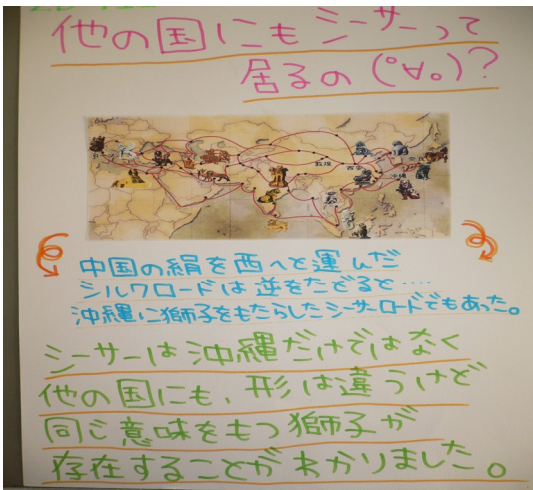 他の国にもシーサーって
居るの(°∀。)?
敦煌
西安
奈良
沖縄
中国の絹を西へと運んだ
シルクロードは逆をたどると‥‥
沖縄に獅子をもたらしたシーサーロードでもあった。
シーサーは沖縄だけではなく
他の国にも、形は違うけど
同じ意味をもつ獅子が
存在することがわかりました。